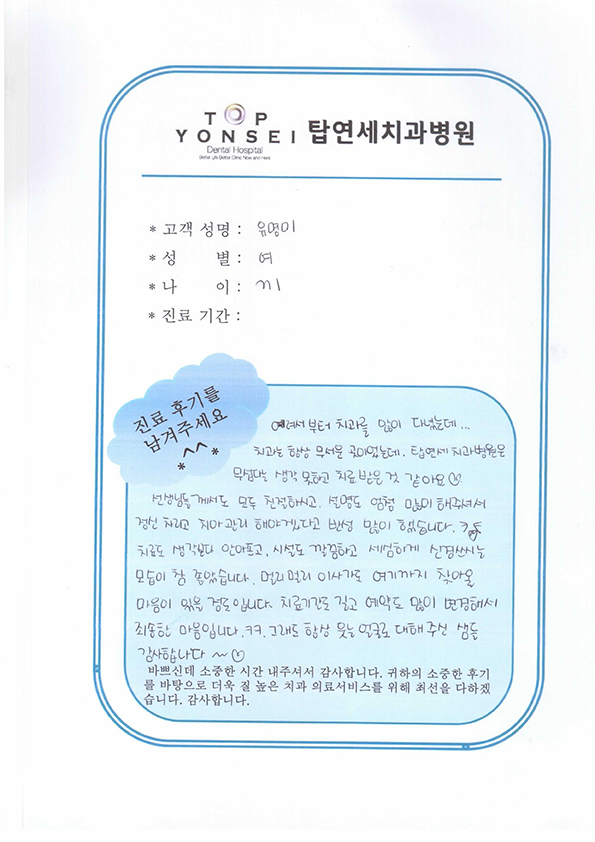 TOP
YONSEI 탑연세치과병원
Dental Hospital
Better Life Better Clinic Now and Here
* 고객 성명 : 유영미
* 성 별 : 여
* 나 이 :
* 진료 기간 :
진료 후기를
남겨주세요
*^^*
어려서부터 치과를 많이 다녔는데...
치과는 항상 무서운 곳이었는데. 탑연세치과병원은
무섭다는 생각 못하고 치료 받은 것 같아요♡
선생님들께서도 모두 친절하시고. 설명도 엄청 많이 해주셔서
정신 차리고 치아관리 해야겠다고 반성 많이 했습니다. ㅋㅋ
치료도 생각보다 안아프고, 시설도 깔끔하고 세심하게 신경쓰시는
모습이 참 좋았습니다. 멀리멀리 이사가도 여기까지 찾아올
마음이 있을 정도입니다. 치료기간도 길고 예약도 많이 변경해서
죄송한 마음입니다. ㅋㅋ. 그래도 항상 웃는 얼굴로 대해 주신 쌤들
감사합니다 ~♡
바쁘신데 소중한 시간 내주셔서 감사합니다. 귀하의 소중한 후기
를 바탕으로 더욱 질 높은 치과 의료서비스를 위해 최선을 다하겠
습니다. 감사합니다.